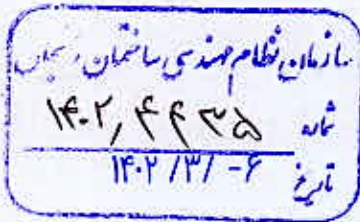 سازمان نظام مهندسی ساختمان زنجان
شماره ۱۴۰۲,۴۴۳۵
تاریخ ۱۴۰۲/۳/-۶